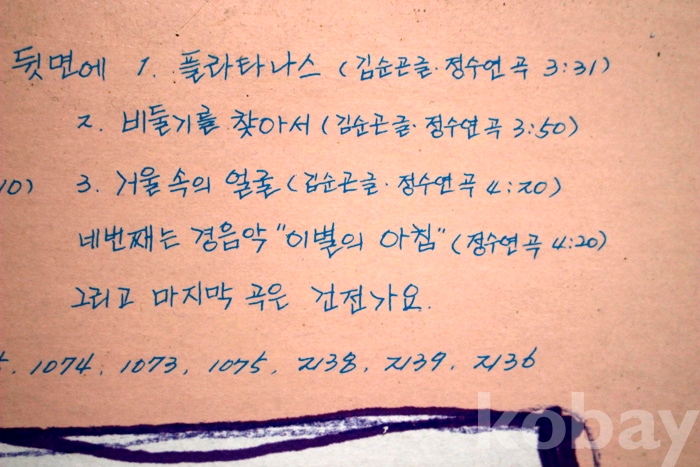 뒷면에 1. 플라타나스 (김순곤글·정수연곡 3:31)
2. 비둘기를 찾아서 (김순곤글·정수연곡 3:50)
10) 3. 거울 속의 얼굴 (김순곤글·정수연곡 4:20)
네번째는 경음악 "이별의 아침" (정수연곡 4:20)
그리고 마지막 곡은 건전가요.
1074, 1073, 1075, 2138, 2139, 2136
kobay